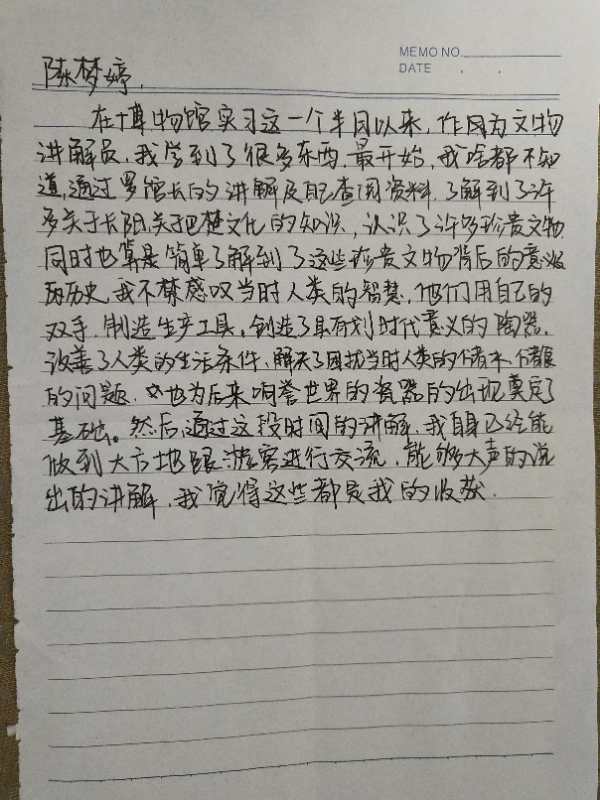 MEMO NO.
DATE . .
陈梦婷.
在博物馆实习这一个半月以来,作为文物
讲解员,我学到了很多东西.最开始,我啥都不知
道,通过罗馆长的讲解及自己查阅资料.了解到了许
多关于长阳,关于巴楚文化的知识,认识了许多珍贵文物.
同时也算是简单了解到了这些珍贵文物背后的意义
历史.我不禁感叹当时人类的智慧,他们用自己的
双手.制造生产工具,创造了具有划时代意义的陶器.
改善了人类的生活条件、解决了困扰当时人类的储水、储食
的问题.也为后来响誉世界的瓷器的出现奠定了
基础。然后,通过这段时间的讲解.我自己已经能
做到大方地跟游客进行交流.能够大声的说
出的讲解.我觉得这些都是我的收获.